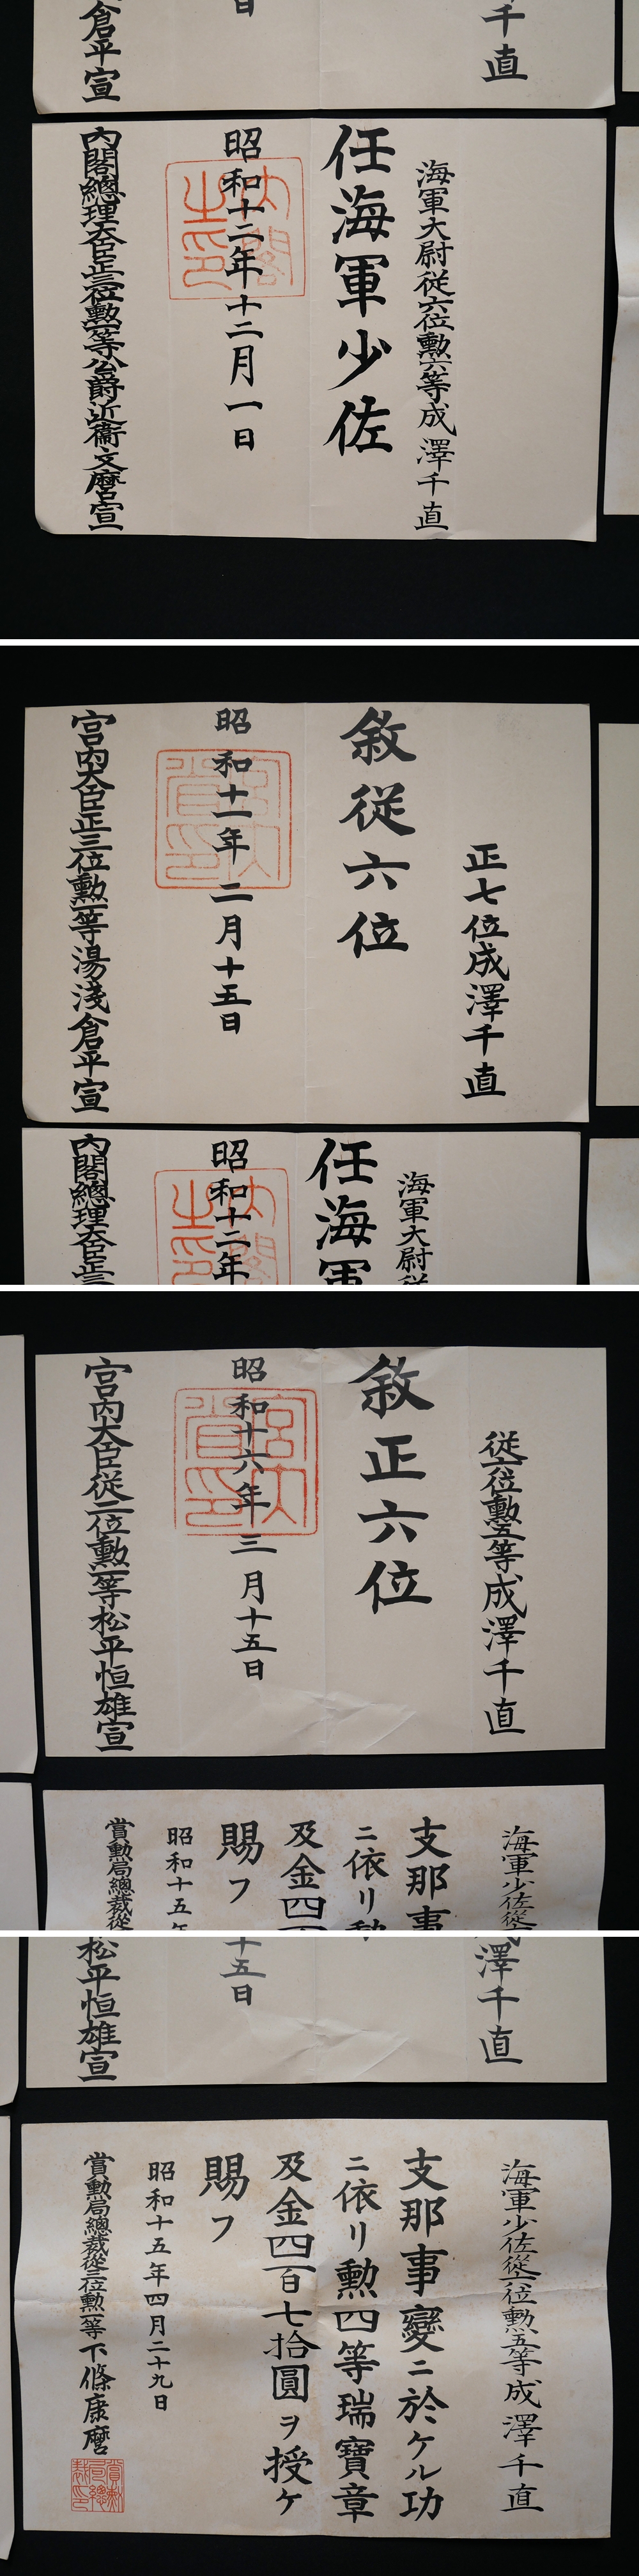 千直
日
倉平宣
海軍大尉從六位勲六等成澤千直
任海軍少佐
昭和十二年十二月一日
内閣之印
内閣總理大臣正二位勲一等公爵近衞文麿宣
正七位成澤千直
敘從六位
昭和十一年二月十五日
宮内省印
宮内大臣正三位勲一等湯淺倉平宣
海軍大尉從
任海軍
昭和十二年
内閣之
内閣總理大臣正二
從六位勲五等成澤千直
敘正六位
昭和十六年三月十五日
宮内省印
宮内大臣從二位勲一等松平恒雄宣
海軍少佐從六
支那事
ニ依リ勲
及金四百
賜フ
昭和十五年
賞勲局總裁從
澤千直
十五日
松平恒雄宣
海軍少佐從六位勲五等成澤千直
支那事變ニ於ケル功
ニ依リ勲四等瑞寶章
及金四百七拾圓ヲ授ケ
賜フ
昭和十五年四月二十九日
賞勲局總裁從三位勲一等下條康麿
賞勲局總裁印